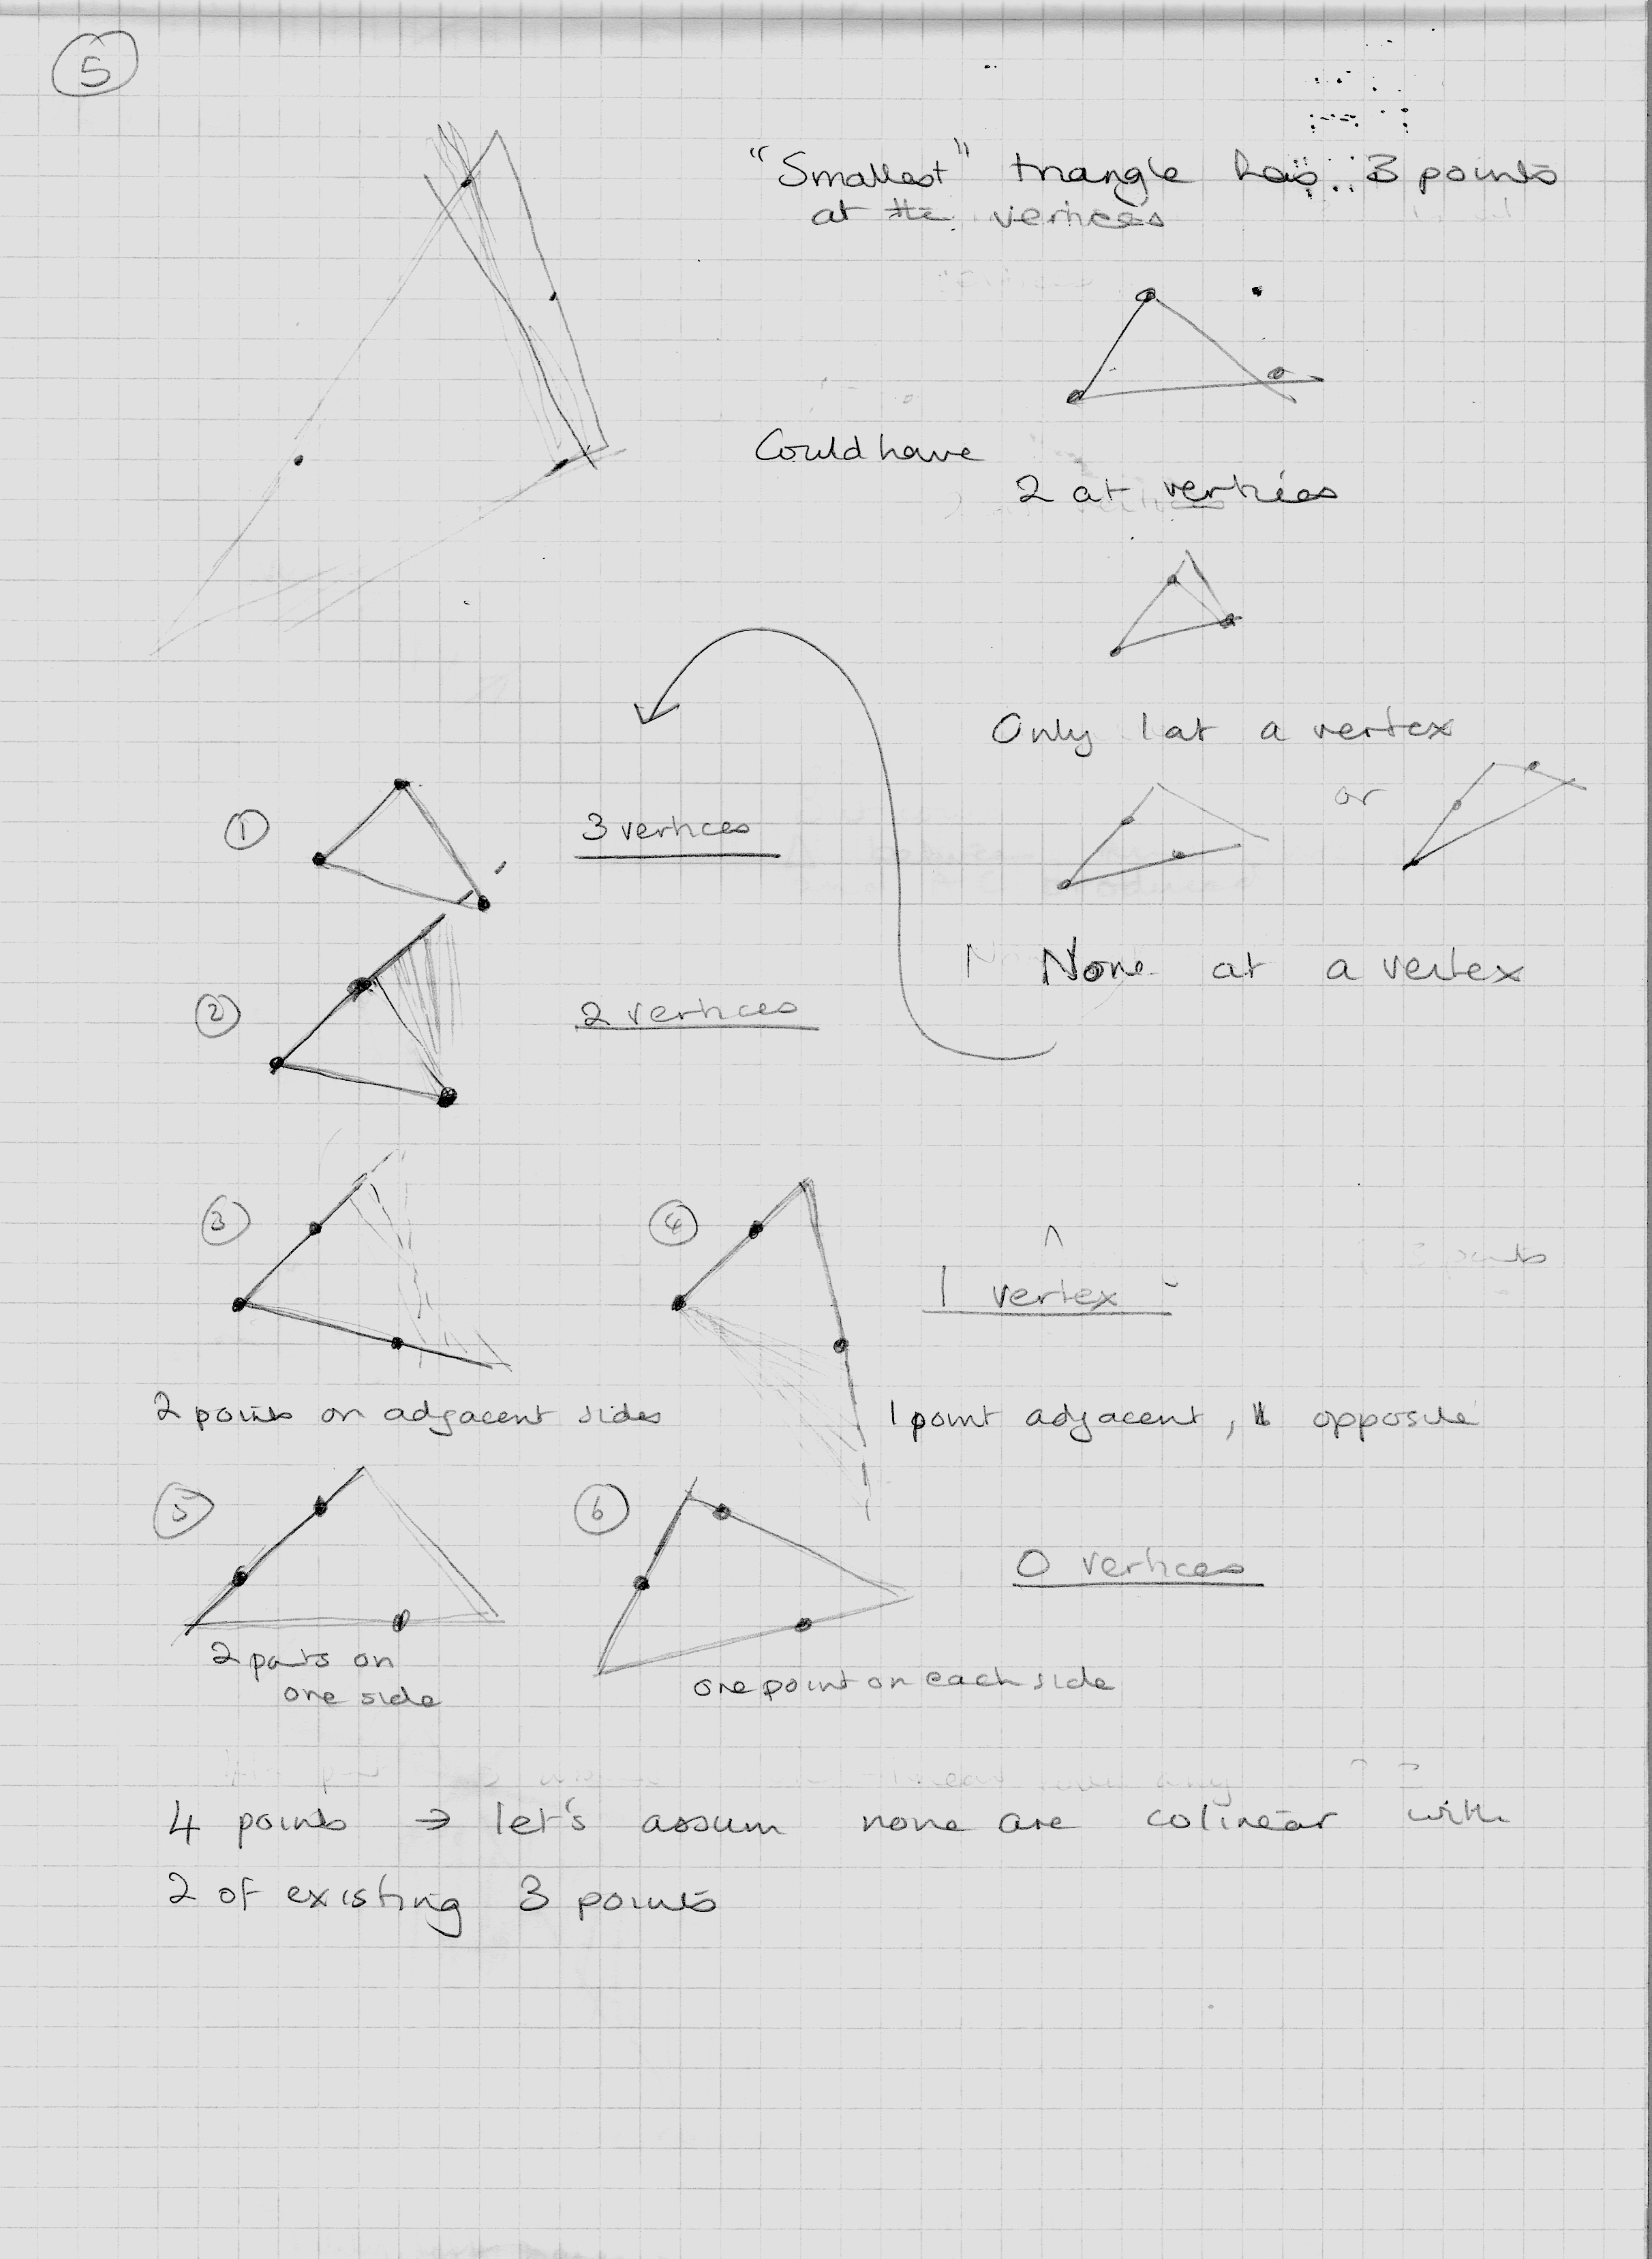 5
"Smallest" triangle has 3 points
at the vertices
Could have
2 at vertices
Only 1 at a vertex
or
None at a vertex
① 3 vertices
② 2 vertices
③ ④ 1 vertex
2 points on adjacent sides
1 point adjacent, 1 opposite
⑤ ⑥ 0 vertices
2 points on
one side
one point on each side
4 points → let's assum none are colinear with
2 of existing 3 points